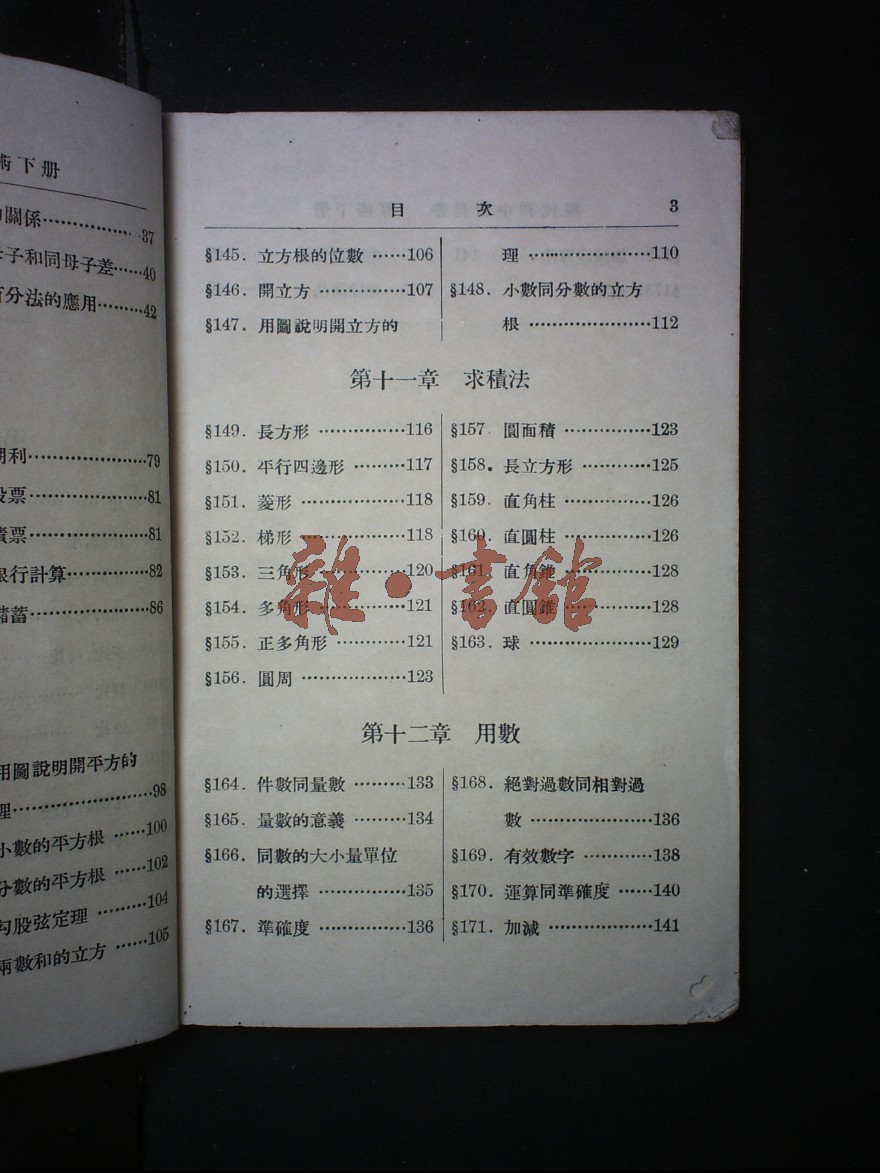 術下册
關係……37
子和同母子差……40
百分法的應用……42
利……79
股票……81
票……81
銀行計算……82
儲蓄……86
用圖說明開平方的
理……98
小數的平方根……100
分數的平方根……102
勾股弦定理……104
兩數和的立方……105
目次 3
§145. 立方根的位數……106
§146. 開立方……107
§147. 用圖說明開立方的
理……110
§148. 小數同分數的立方
根……112
第十一章 求積法
§149. 長方形……116
§150. 平行四邊形……117
§151. 菱形……118
§152. 梯形……118
§153. 三角形……120
§154. 多角形……121
§155. 正多角形……121
§156. 圓周……123
§157. 圓面積……123
§158. 長立方形……125
§159. 直角柱……126
§160. 直圓柱……126
§161. 直角錐……128
§162. 直圓錐……128
§163. 球……129
雜·書館
第十二章 用數
§164. 件數同量數……133
§165. 量數的意義……134
§166. 同數的大小量單位
的選擇……135
§167. 準確度……136
§168. 絕對過數同相對過
數……136
§169. 有效數字……138
§170. 運算同準確度……140
§171. 加減……141